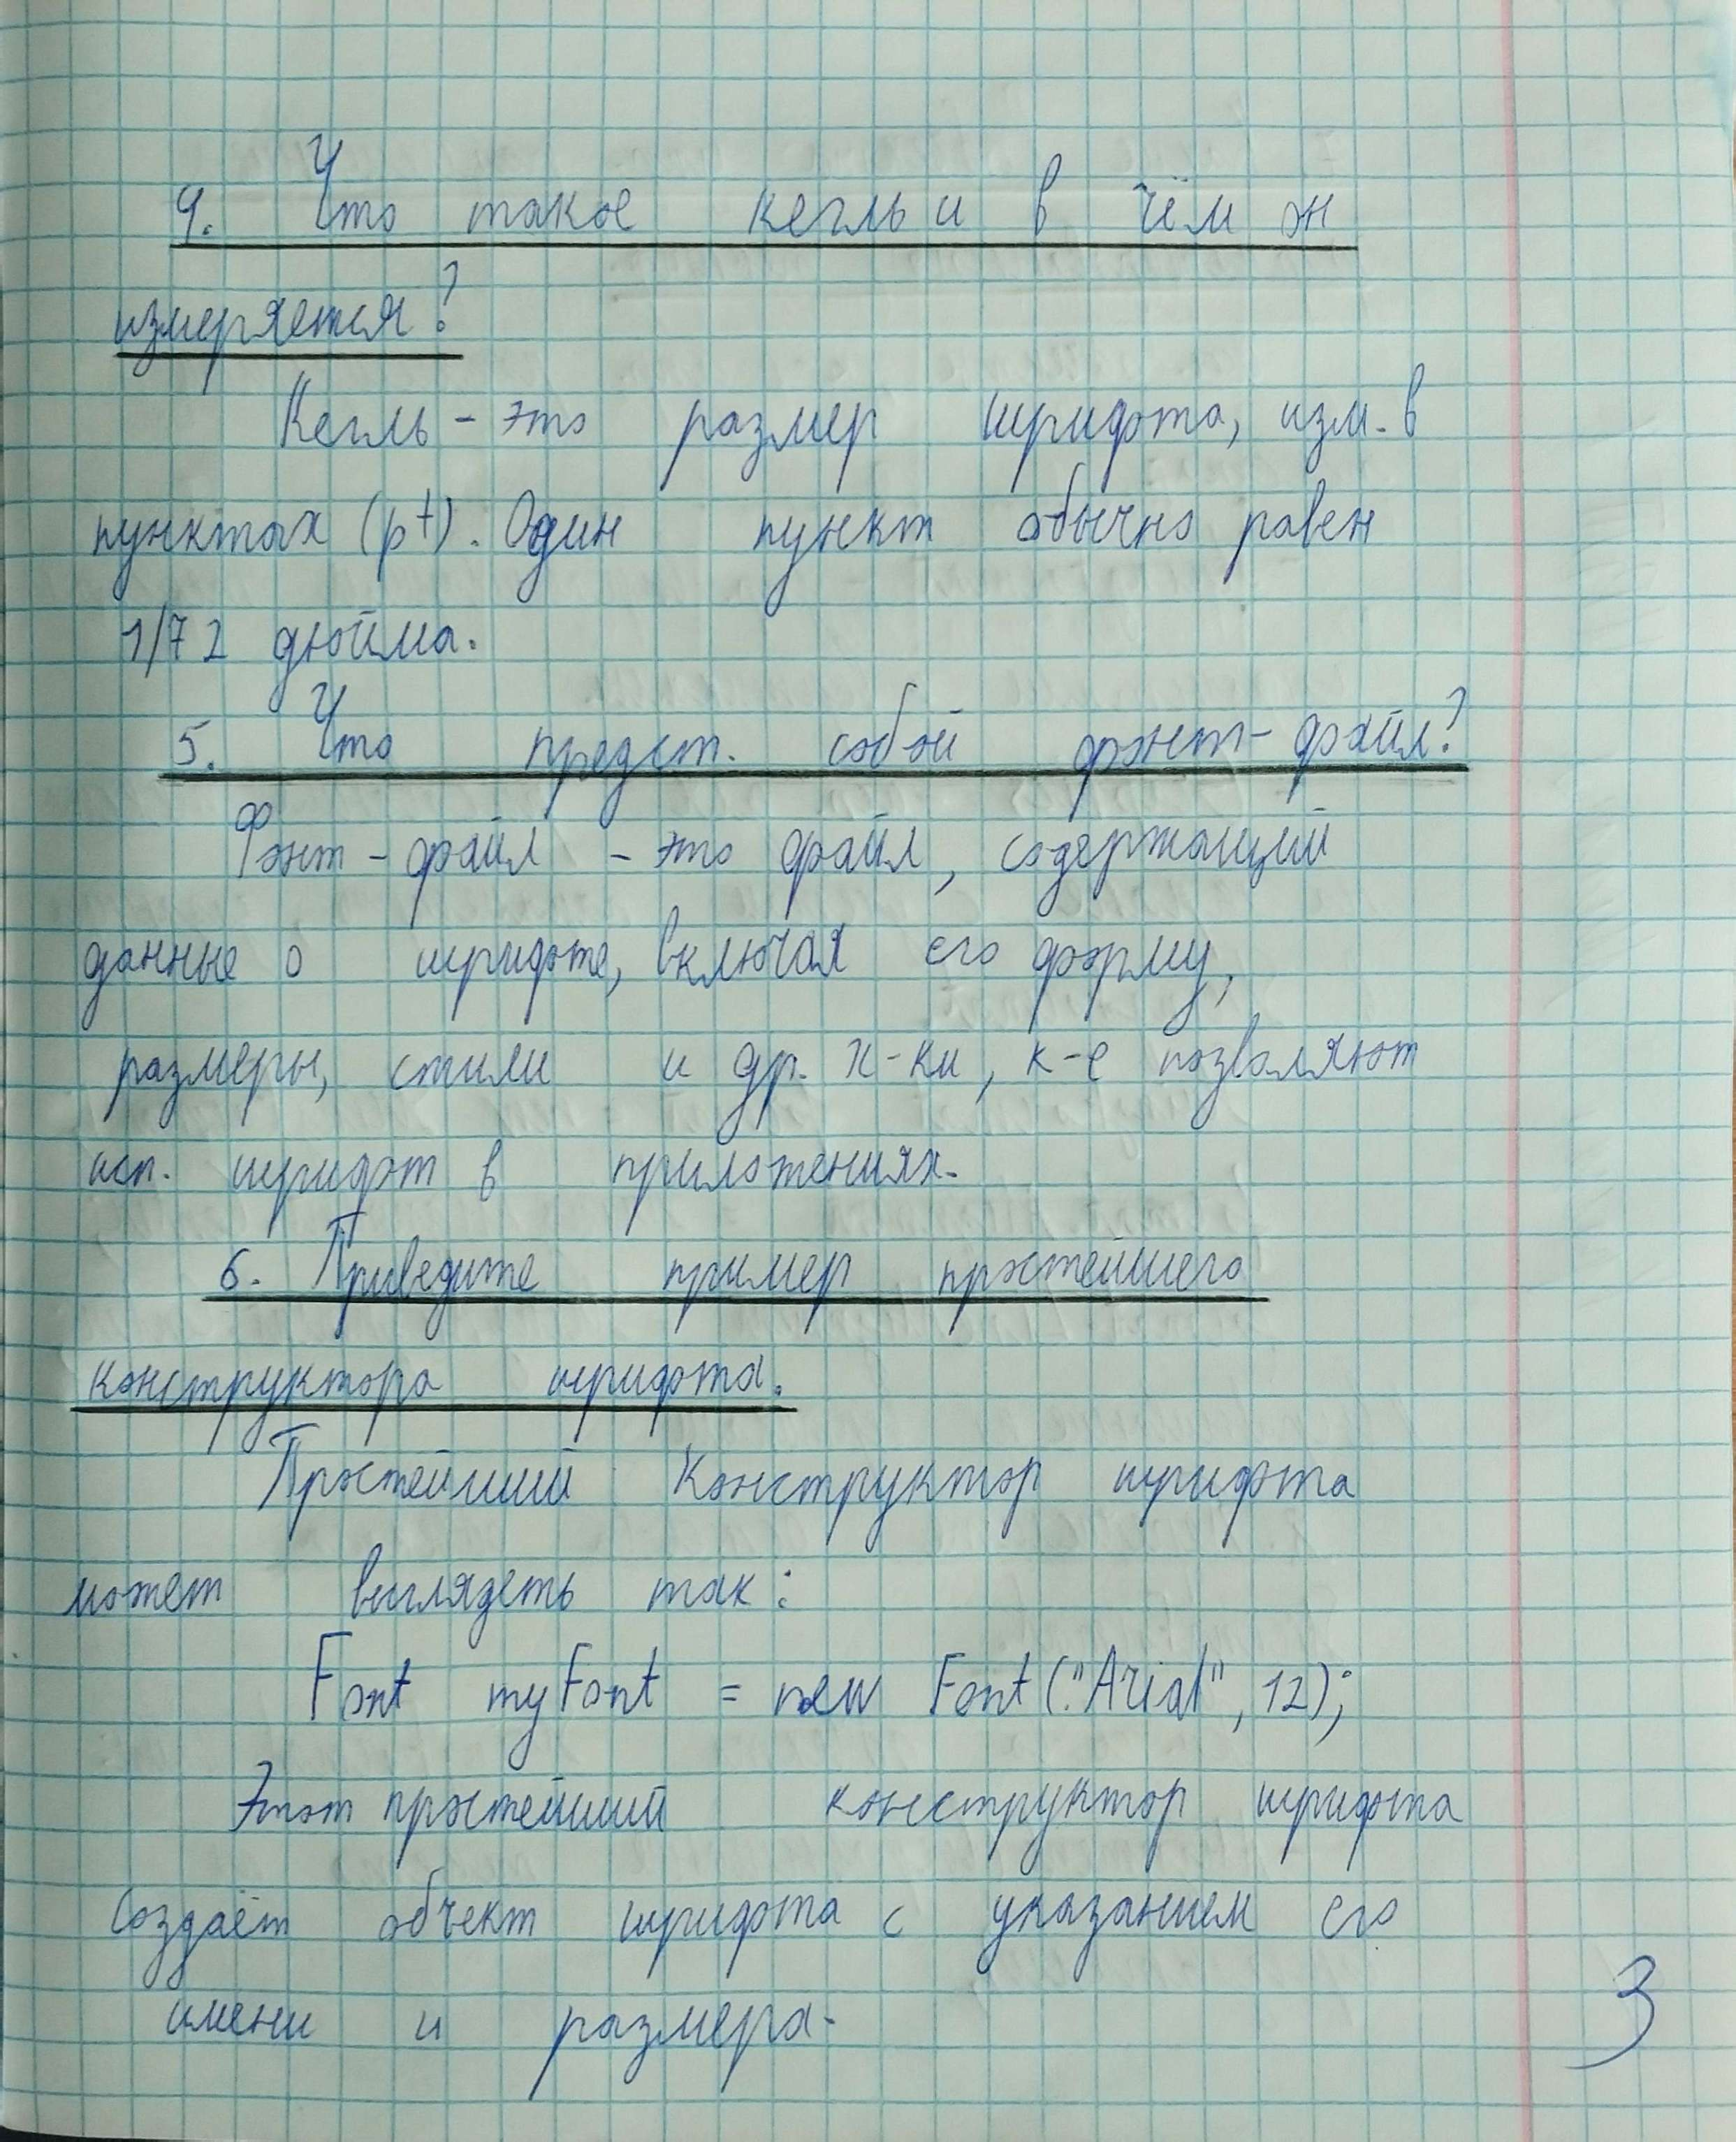 4. Что такое кегль и в чём он
измеряется?
Кегль - это размер шрифта, изм. в
пунктах (pt). Один пункт обычно равен
1/72 дюйма.
5. Что предст. собой фонт-файл?
Фонт-файл - это файл, содержащий
данные о шрифте, включая его форму,
размеры, стили и др. х-ки, к-е позволяют
исп. шрифт в приложениях.
6. Приведите пример простейшего
конструктора шрифта.
Простейший конструктор шрифта
может выглядеть так:
Font myFont = new Font("Arial", 12);
Этот простейший конструктор шрифта
создаёт объект шрифта с указанием его
имени и размера.
3